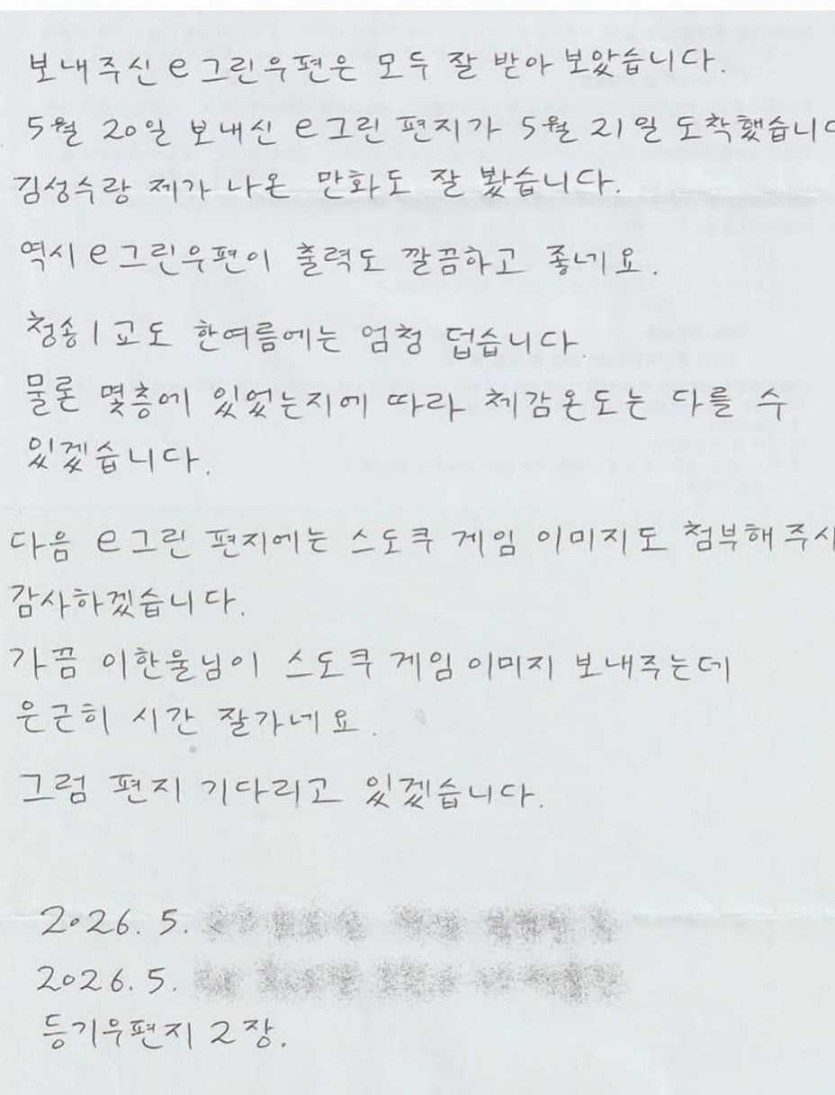 보내주신 e그린우편은 모두 잘 받아 보았습니다.
5월 20일 보내신 e그린 편지가 5월 21일 도착했습니다
김성수랑 제가 나온 만화도 잘 봤습니다.
역시 e그린우편이 출력도 깔끔하고 좋네요.
청송1교도 한여름에는 엄청 덥습니다
물론 몇층에 있었는지에 따라 체감온도는 다를 수
있겠습니다.
다음 e그린 편지에는 스도쿠 게임 이미지도 첨부해주시
감사하겠습니다.
가끔 이한울님이 스도쿠 게임 이미지 보내주는데
은근히 시간 잘가네요.
그럼 편지 기다리고 있겠습니다.
2026. 5.
2026. 5.
등기우편지 2장.